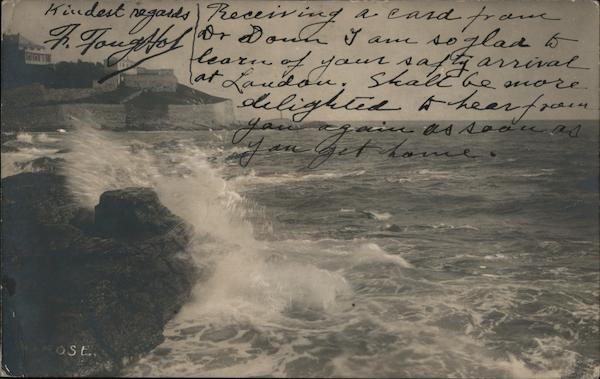 Kindest regards
F.
Receiving a card from
Dr Down I am so glad to
learn of your safty arrival
at London. Shall be more
delighted to hear from
you again as soon as
you get home.
OSE.